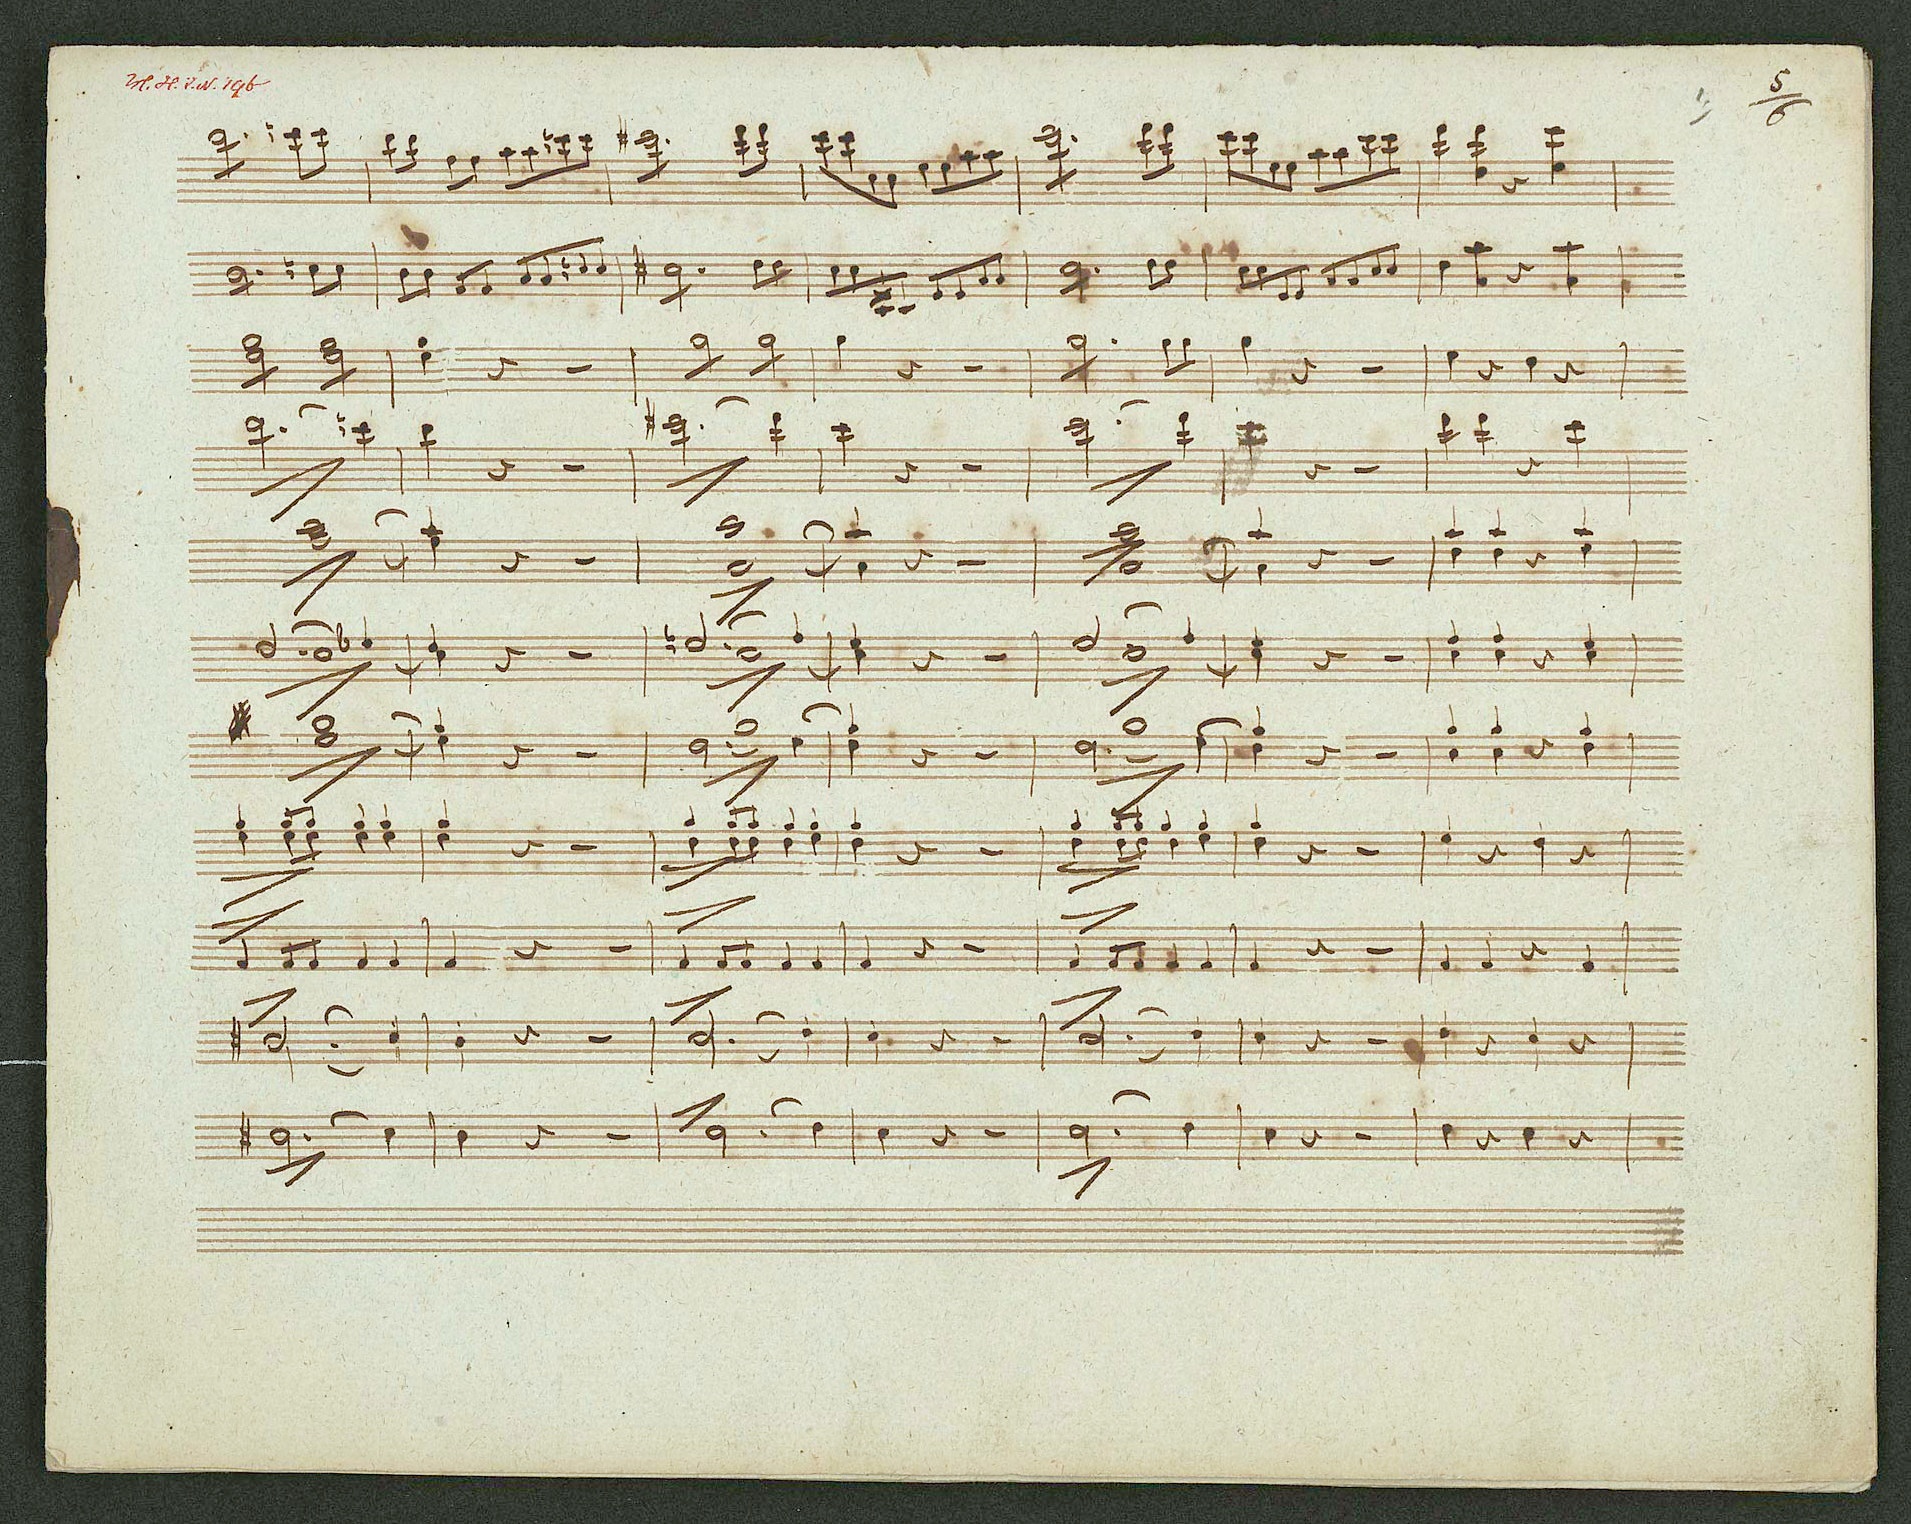 M. H. I. N. 196
5
6